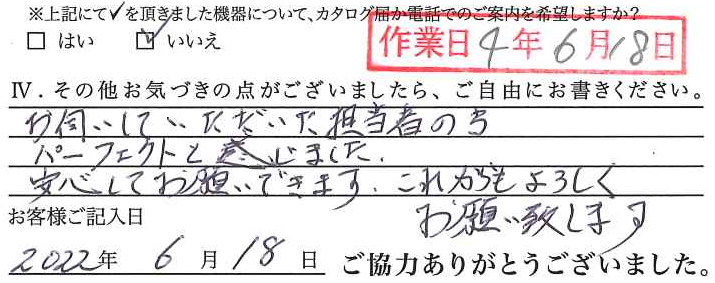 ※上記にて✓を頂きました機器について、カタログ届か電話でのご案内を希望しますか?
□ はい ☑ いいえ
作業日 4 年 6 月 18 日
Ⅳ．その他お気づきの点がございましたら、ご自由にお書きください。
お伺いしていただいた担当者の方
パーフェクトと感じました.
安心してお願いできます. これからもよろしく
お願い致します
お客様ご記入日
2022 年 6 月 18 日 ご協力ありがとうございました。